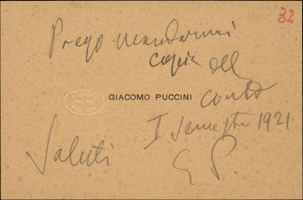 32
Prego mandarmi
copia del
GIACOMO PUCCINI
conto
I Semestre 1921
Saluti
G P.